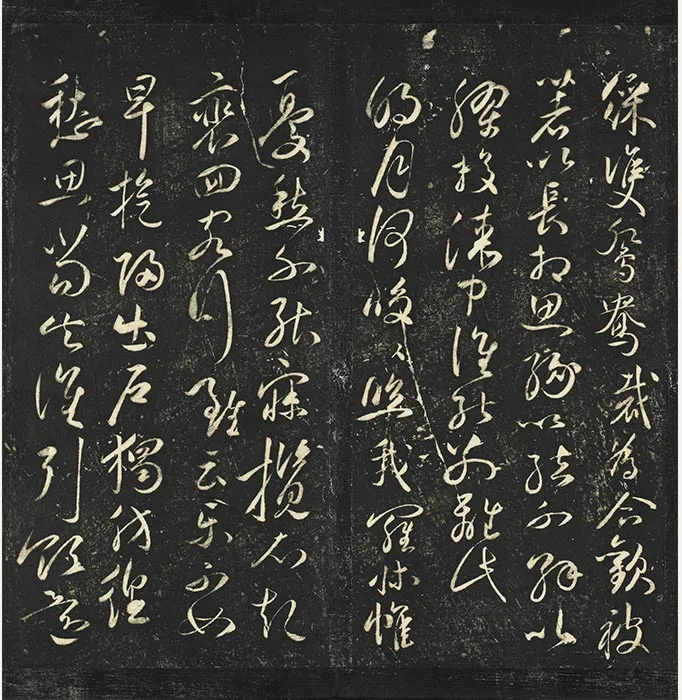 綵雙鴛鴦裁為合歡被
著以長相思緣以結不解以
膠投漆中誰能別離此
明月何皎〻照我羅床帷
憂愁不能寐攬衣起
裵回客行雖云樂不如
早旋歸出戶獨彷徨
愁思當告誰引領還